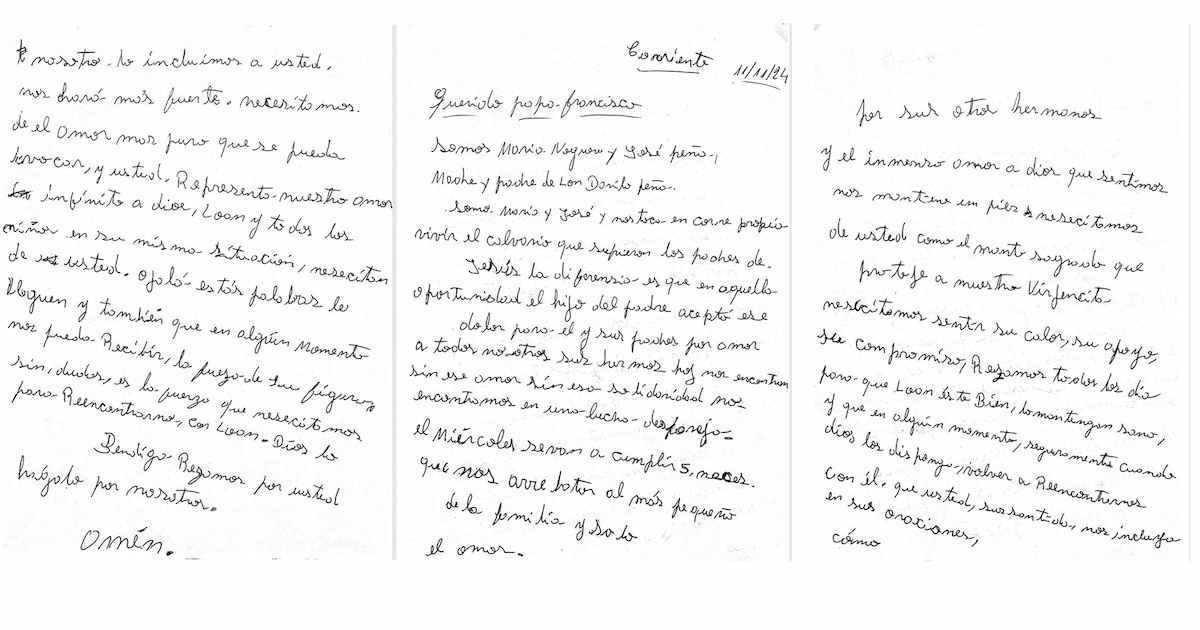 Corriente 11/11/24
Querido papa francisco
Somos Maria Noguera y José peña,
Madre y padre de Loan Danilo peña.
Somo Maria y José y nos toca en carne propia
vivir el calvario que sufrieron los padres de
Jesús la diferensia es que en aquella
oportunidad el hijo del padre aceptó ese
dolor para el y sus padres por amor
a todos nosotros sus hermos hoy nos encontram
sin ese amor sin esa solidaridad nos
encontamos en una lucha despareja=
el Miércoles se van a cumplir 5. meses.
que nos arrebatar al más pequeño
de la familia y solo
el amor.
por sus otros hermanos
y el inmenso amor a dios que sentimos
nos mantiene en pies nesecitamos
de usted como el manto sagrado que
proteje a nuestra Virjencita
nesecitamos sentir su calor, su apoyo,
su compromiso, Rezamos todos los día
para que Loan éste Bien, lo mantingan sano,
y que en algún momento, seguramente cuando
dios los disponga, volver a Reencontrarnos
con él. que usted, su santida, nos incluya
en sus oraciones,
cómo
nosotro. lo incluimos a usted.
nos hará más fuerte. necesitamos.
de el amor mas puro que se pueda
invocar, y usted. Representa nuestro amor
infinito a dios, Loan y todos los
niños en su misma situación, nesecitan
de usted. ojalá estás palabras le
lleguen y también que en algún momento
nos pueda Recibir, la fuerza de su figura,
sin, dudas, es la fuerza que nesecitamos
para Reencontrarno, con Loan. Dios lo
Bendiga Rezamos por usted
hágalo por nosotros.
Amén.